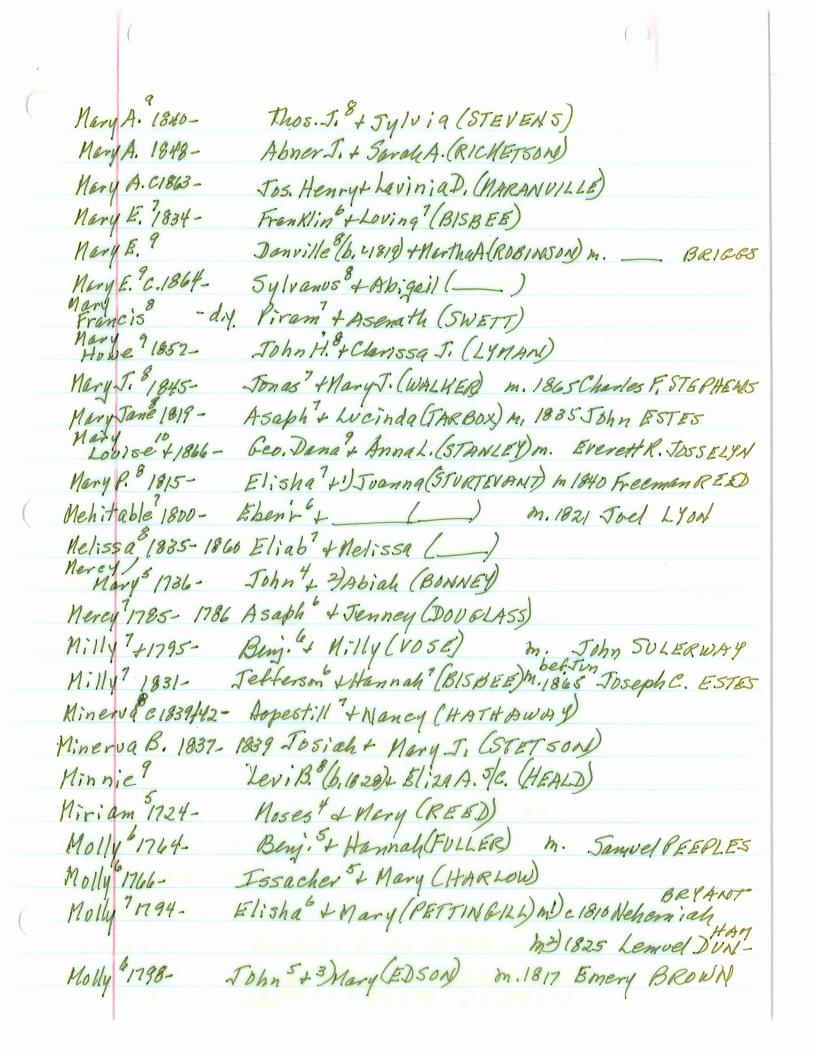 Mary A.⁹ 1840- Thos. J.⁸ + Sylvia (STEVENS)
Mary A. 1848- Abner J. + Sarah A. (RICKETSON)
Mary A. c1863- Jos. Henry + Lavinia D. (MARANVILLE)
Mary E.⁷ 1834- Franklin⁶ + Loving⁷ (BISBEE)
Mary E.⁹ Danville⁸ (b. c1819) + Martha A (ROBINSON) m. ___ BRIGGS
Mary E.⁹ c.1864- Sylvanus⁸ + Abigail (____)
Mary
Francis⁸ -d.y. Piram⁷ + Asenath (SWETT)
Mary
Howe⁹ 1852- John H.⁸ + Clarissa J. (LYMAN)
Mary J.⁸ 1845- Jonas⁷ + Mary J. (WALKER) m. 1865 Charles F. STEPHENS
Mary Jane⁸ 1819- Asaph⁷ + Lucinda (TARBOX) m. 1835 John ESTES
Mary
Louise¹⁰ +1866- Geo. Dana⁹ + Anna L. (STANLEY) m. Everett R. JOSSELYN
Mary P.⁸ 1815- Elisha⁷ + 1) Joanna (STURTEVANT) m 1840 Freeman REED
Mehitable⁷ 1800- Eben'r⁶ + ________ (____) m. 1821 Joel LYON
Melissa⁸ 1835- 1860 Eliab⁷ + Melissa (____)
Mercy/
Mary⁵ 1736- John⁴ + 2) Abiah (BONNEY)
Mercy⁷ 1785- 1786 Asaph⁶ + Jenney (DOUGLASS)
Milly⁷ +1795- Benj.⁶ + Milly (VOSE) m. John SULERWAY
Milly⁷ 1831- Jefferson⁶ + Hannah⁷ (BISBEE) m. bef Jun 1865 Joseph C. ESTES
Minerva⁸ c1839/42- Hopestill⁷ + Nancy (HATHAWAY)
Minerva B. 1837- 1839 Josiah + Mary J. (STETSON)
Minnie⁹ Levi B.⁸ (b. 1828) + Eliza A. S/C. (HEALD)
Miriam⁵ 1724- Moses⁴ + Mary (REED)
Molly⁶ 1764- Benj.⁵ + Hannah (FULLER) m. Samuel PEEPLES
Molly⁶ 1766- Issacher⁵ + Mary (HARLOW)
Molly⁷ 1794- Elisha⁶ + Mary (PETTINGILL) m1) c1810 Nehemiah BRYANT
m2) 1825 Lemuel DUN-HAM
Molly⁶ 1798- John⁵ + 3) Mary (EDSON) m. 1817 Emery BROWN